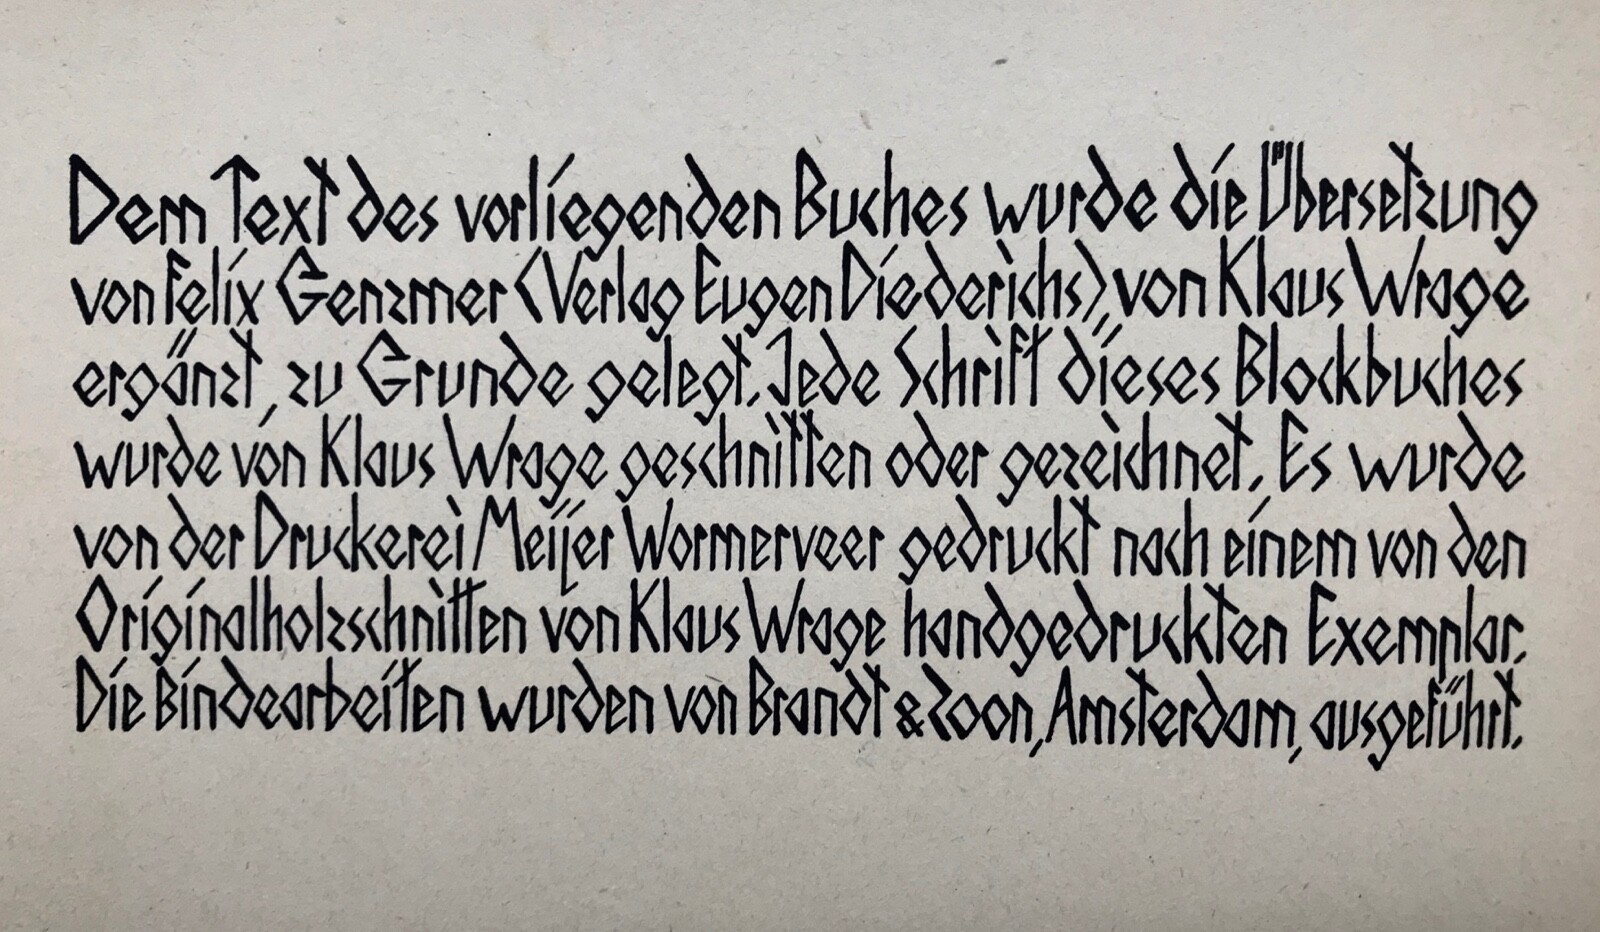 Dem Text des vorliegenden Buches wurde die Übersetzung
von Felix Genzmer (Verlag Eugen Diederichs), von Klaus Wrage
ergänzt, zu Grunde gelegt. Jede Schrift dieses Blockbuches
wurde von Klaus Wrage geschnitten oder gezeichnet. Es wurde
von der Druckerei Meijer Wormerveer gedruckt nach einem von den
Originalholzschnitten von Klaus Wrage handgedruckten Exemplar.
Die Bindearbeiten wurden von Brandt & Zoon, Amsterdam, ausgeführt.